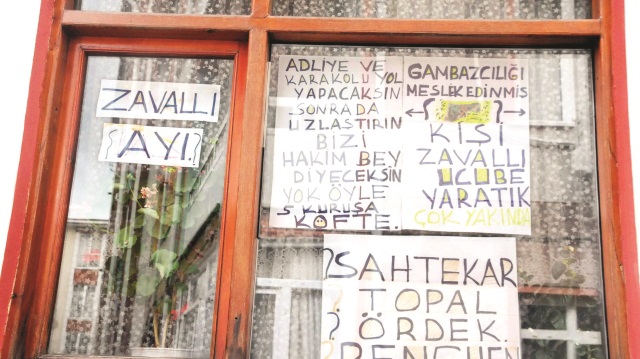 ZAVALLI
¿AYI?
ADLİYE VE
KARAKOLU YOL
YAPACAKSIN
SONRADA
UZLAŞTIRIN
BİZİ
HAKİM BEY
DİYECEKSİN
YOK ÖYLE
5 KURUŞA
KÖFTE.
GAMBAZCILIĞI
MESLEK EDİNMİS
KİŞİ
ZAVALLI
UCUBE
YARATIK
ÇOK YAKINDA
?SAHTEKAR
? TOPAL
? ÖRDEK.